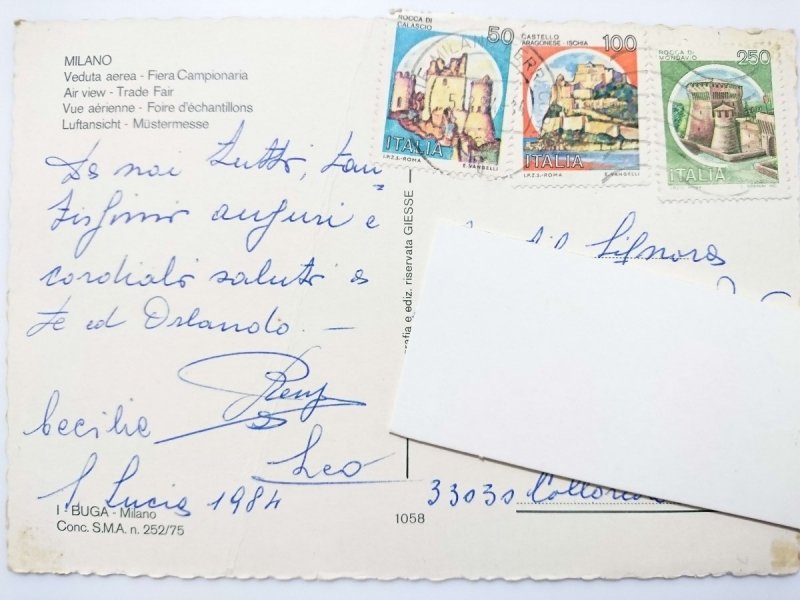 MILANO
Veduta aerea - Fiera Campionaria
Air view - Trade Fair
Vue aérienne - Foire d'échantillons
Luftansicht - Müstermesse
ROCCA DI
CALASCIO
50
ITALIA
I.P.Z.S.-ROMA E. VANGELLI
CASTELLO
ARAGONESE - ISCHIA
100
ITALIA
I.P.Z.S.-ROMA E. VANGELLI
ROCCA DI
MONDAVIO
250
ITALIA
Da noi tutti, tan
tissimi auguri e
cordiali saluti a
te ed Orlando. —
Cecilia
Leo
S. Lucia 1984
I - BUGA - Milano
Conc. S.M.A. n. 252/75
e ediz. riservata GIESSE
1058
Signora
33030